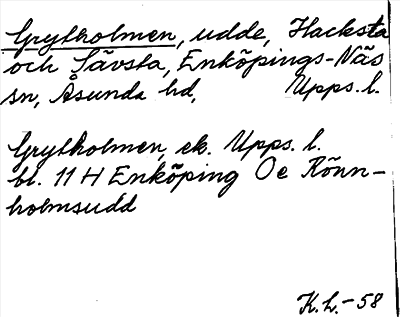 Grytholmen, udde, Hacksta
och Sävsta, Enköpings-Näs
sn, Åsunda hd, Upps. l.
Grytholmen, ek. Upps. l.
bl. 11 H Enköping Oe Rönn-
holmsudd
K.L.-58